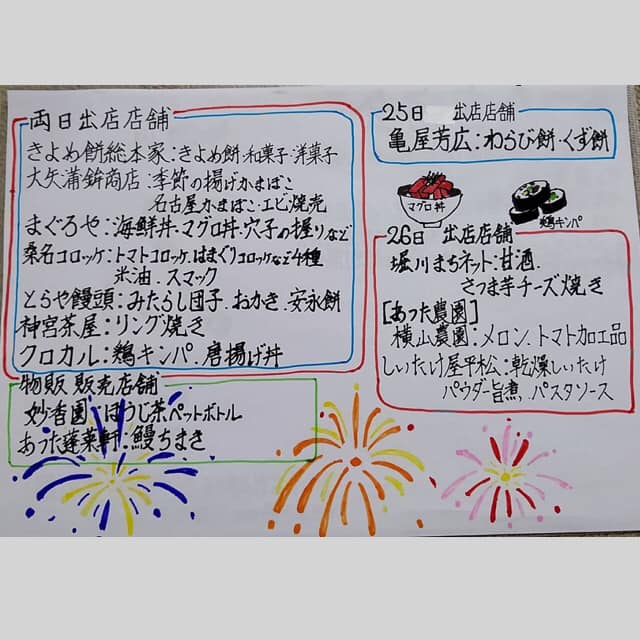 両日出店店舗
きよめ餅総本家:きよめ餅・和菓子・洋菓子
大矢蒲鉾商店:季節の揚げかまぼこ
名古屋かまぼこ・エビ焼売
まぐろや:海鮮丼・マグロ丼・穴子の握りなど
桑名コロッケ:トマトコロッケ、はまぐりコロッケなど4種
米油、スマック
とらや饅頭:みたらし団子、おかき、安永餅
神宮茶屋:リング焼き
クロカル:鶏キンパ、唐揚げ丼
物販 販売店舗
妙香園:ほうじ茶ペットボトル
あつた蓬莱軒:鰻ちまき
25日 出店店舗
亀屋芳広:わらび餅・くず餅
マグロ丼
鶏キンパ
26日 出店店舗
堀川まちネット:甘酒、
さつま芋チーズ焼き
[あった農園]
横山農園:メロン、トマト加工品
しいたけ屋平松:乾燥しいたけ
パウダー旨煮、パスタソース